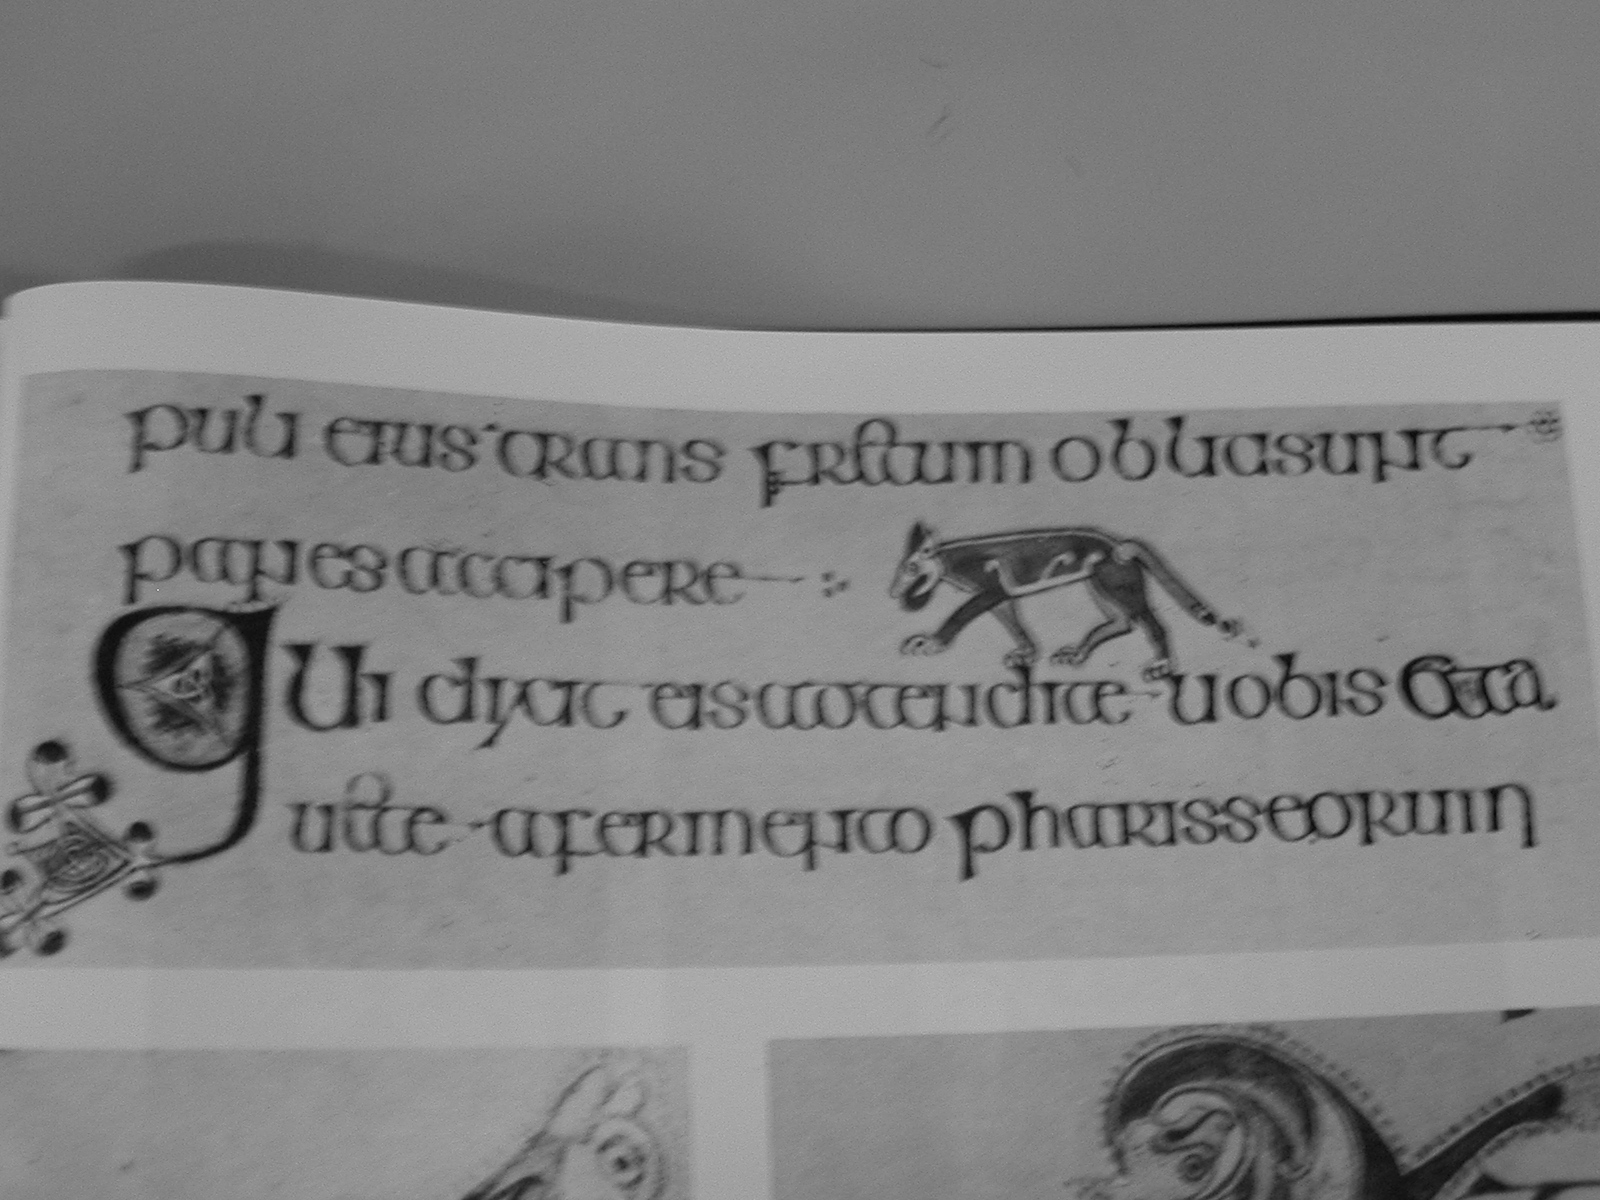 puli eius trans fretum obliti sunt
panes accipere
Qui dixit eis adtendite uobis et ca
uete a fermento pharisseorum